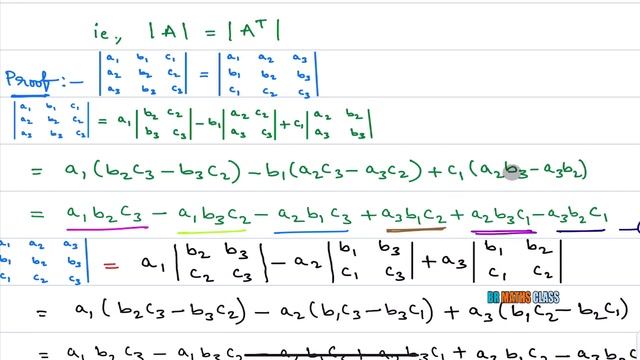 ie., |A| = |Aᵀ|
Proof :- | a₁ b₁ c₁ ; a₂ b₂ c₂ ; a₃ b₃ c₃ | = | a₁ a₂ a₃ ; b₁ b₂ b₃ ; c₁ c₂ c₃ |
| a₁ b₁ c₁ ; a₂ b₂ c₂ ; a₃ b₃ c₃ | = a₁ | b₂ c₂ ; b₃ c₃ | - b₁ | a₂ c₂ ; a₃ c₃ | + c₁ | a₂ b₂ ; a₃ b₃ |
= a₁(b₂c₃ - b₃c₂) - b₁(a₂c₃ - a₃c₂) + c₁(a₂b₃ - a₃b₂)
= a₁b₂c₃ - a₁b₃c₂ - a₂b₁c₃ + a₃b₁c₂ + a₂b₃c₁ - a₃b₂c₁
| a₁ a₂ a₃ ; b₁ b₂ b₃ ; c₁ c₂ c₃ | = a₁ | b₂ b₃ ; c₂ c₃ | - a₂ | b₁ b₃ ; c₁ c₃ | + a₃ | b₁ b₂ ; c₁ c₂ |
BR MATHS CLASS
= a₁(b₂c₃ - b₃c₂) - a₂(b₁c₃ - b₃c₁) + a₃(b₁c₂ - b₂c₁)